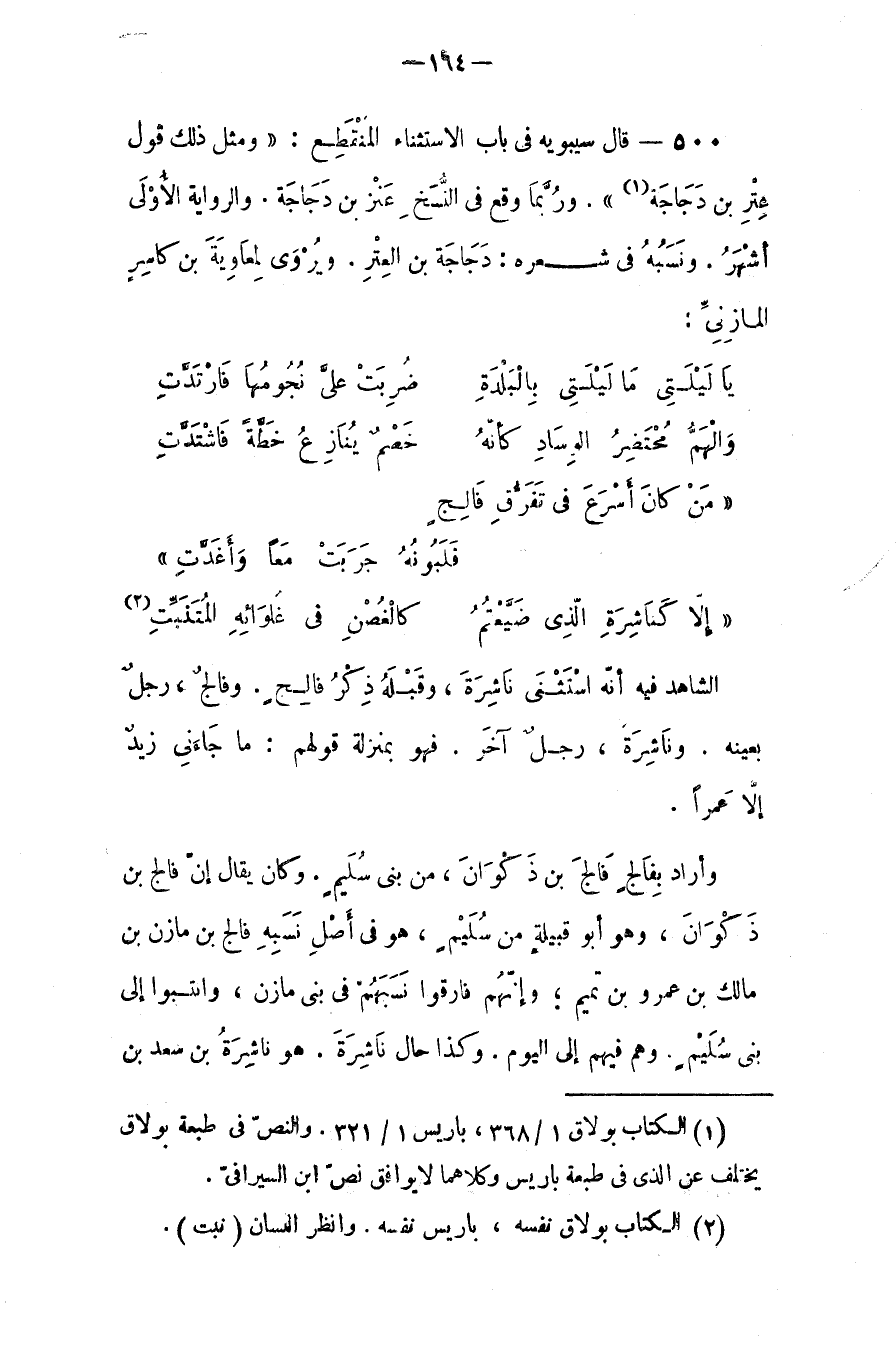 — ١٩٤ —
٥٠٠ — قال سيبويه فى باب الاستثناء المُنْقَطِـع : « ومثل ذلك قول
عِتْرِ بن دَجَاجَة(١) » . ورُبَّمَا وقع فى النُّسَخِ عَنْز بن دَجَاجَة . والرواية الأُوْلَى
أشْهَرُ . ونَسَبُهُ فى شـــعره : دَجَاجَة بن العِتْرِ . ويُرْوَى لمعاوِيَةَ بن كاسِرٍ
المـازِنِىِّ :
يَا لَيْلَـتِى مَا لَيْلَـتِى بِالْبَلْدَةِ ضُرِبَتْ علىَّ نُجُومُهَا فَارْتَدَّتِ
وَالْهَمُّ مُحْتَضِرُ الوِسَادِ كأنّهُ خَصْمٌ يُنَازِعُ خَطَّةً فَاشْتَدَّتِ
« مَنْ كَانَ أسْرَعَ فى تَفَرُّقِ فَالِـجٍ
فَلَبُونُهُ جَرَبَتْ مَعًا وَأَغَدَّتِ »
« إلّا كَنَاشِرَةِ الّذِى ضَيَّعْتُمُ كالْغُصْنِ فى غُلوَائِهِ المُتَنَبِّتِ(٢)
الشاهد فيه أنّه اسْتَثْـنَى نَاشِرَةَ ، وقَبْـلَهُ ذِكْرُ فالِـجٍ . وفالجٌ ، رجلٌ
بعينه . ونَاشِرَةُ ، رجـلٌ آخَر . فهو بمنزلة قولهم : ما جَاءَنِى زيدٌ
إلّا عَمراً .
وأراد بِفَالجٍ فَالجَ بن ذَكْوَانَ ، من بنى سُلَيمٍ . وكان يقال إنّ فالج بن
ذَكْوَانَ ، وهو أبو قبيلةٍ من سُلَيْمٍ ، هو فى أَصْلِ نَسَبِهِ فالج بن مازن بن
مالك بن عمرو بن تميم ؛ وإنّهُم فارقوا نَسَبَهُمْ فى بنى مازن ، وانتسبوا إلى
بنى سُلَيْمٍ . وهم فيهم إلى اليوم . وكذا حال نَاشِرَةَ . هو ناشِرَةُ بن سعد بن
(١) الـكتاب بولاق ١ / ٣٦٨ ، باريس ١ / ٣٢١ . والنصّ فى طبعة بولاق
يختلف عن الذى فى طبعة باريس وكلاهما لايوافق نصّ ابن السيرافىّ .
(٢) الـكتاب بولاق نفسه ، باريس نفسه . وانظر اللسان ( نبت ) .